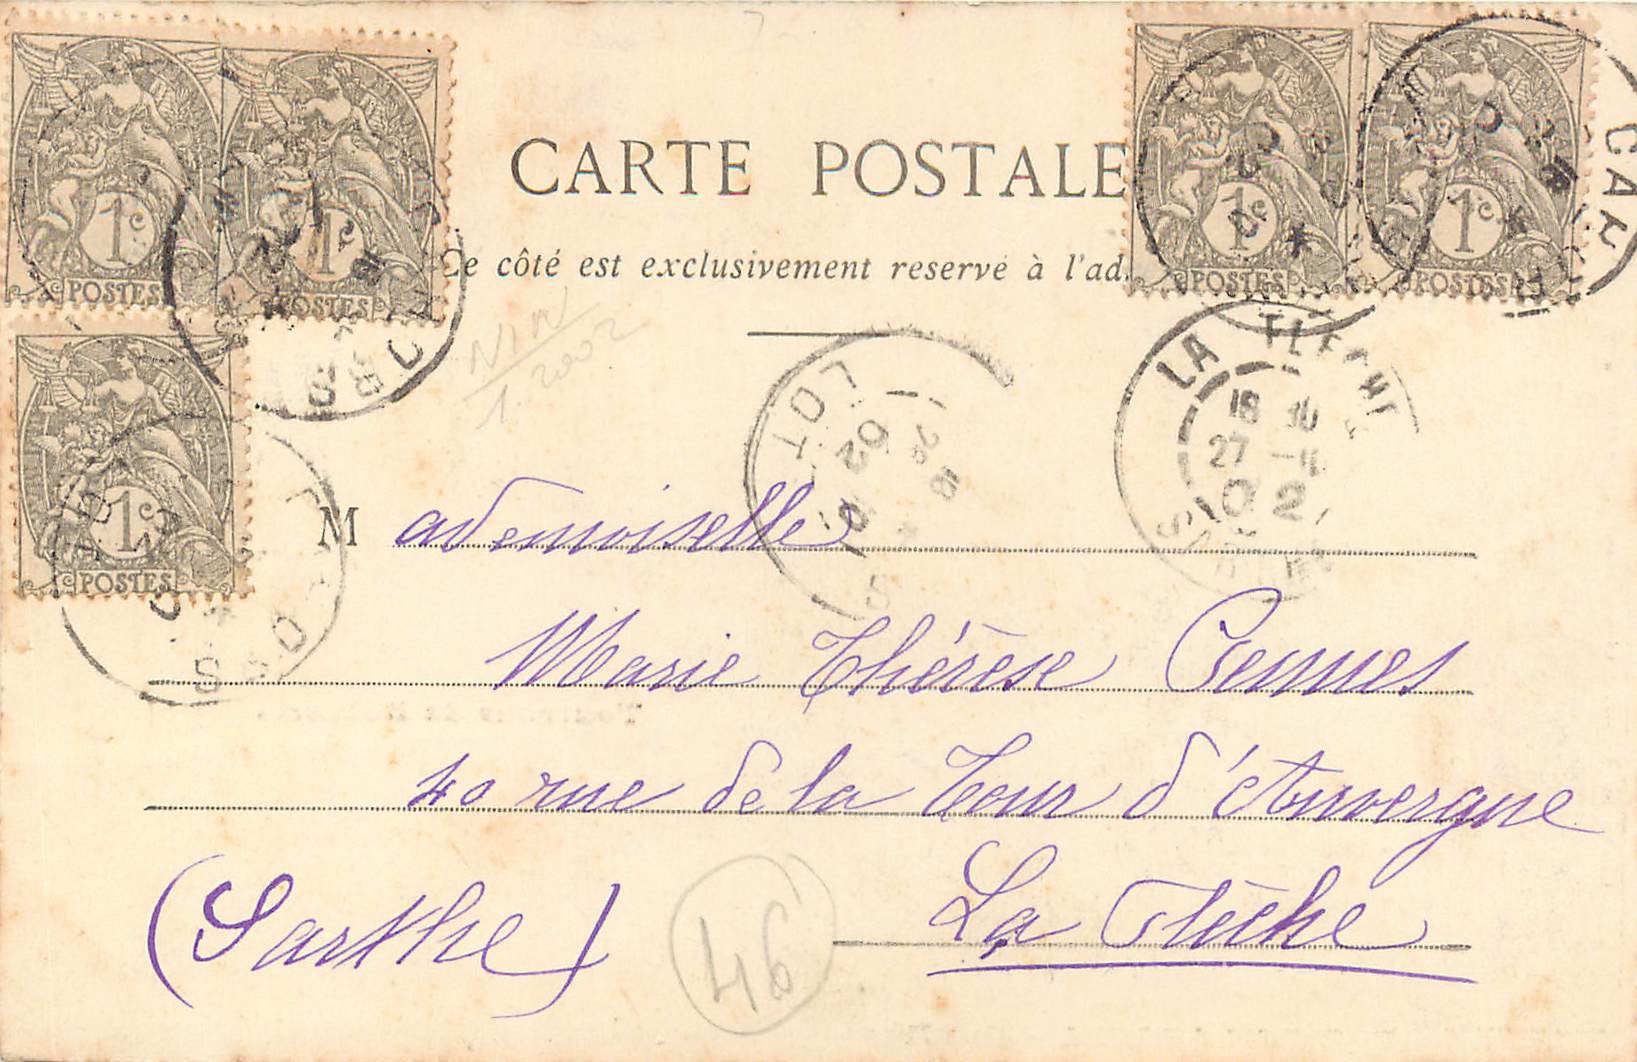 CARTE POSTALE
Ce côté est exclusivement reservé à l'ad
1c 1c 1c 1c
POSTES POSTES POSTES POSTES
1c
POSTES
LOT
02
LA FLECHE
18 30
27 -
02
SARTHE
Mademoiselle
Marie Thérèse
40 rue de la Tour d'Auvergne
La Flèche
(Sarthe)
46